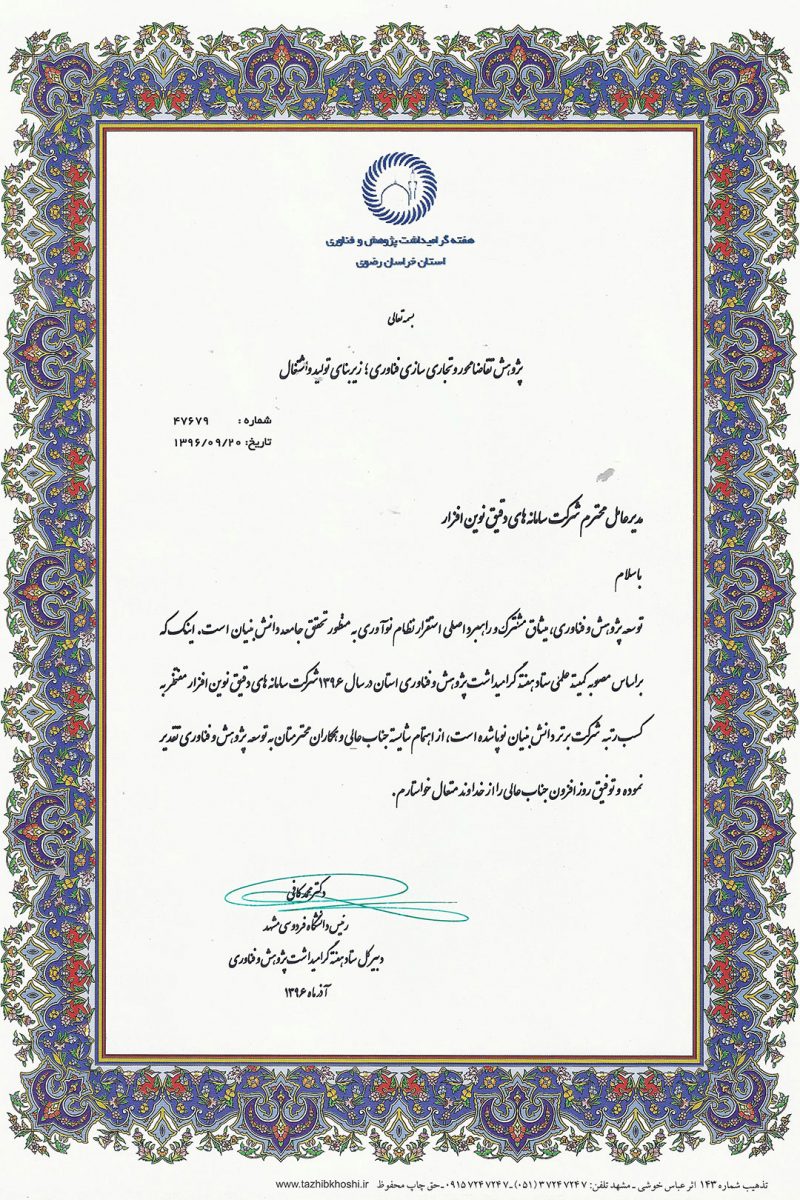 هفته گرامیداشت پژوهش و فناوری
استان خراسان رضوی
بسمه تعالی
پژوهش تقاضامحور و تجاری سازی فناوری؛ زیربنای تولید و اشتغال
شماره : ۴۷۶۷۹
تاریخ: ۱۳۹۶/۰۹/۲۰
مدیرعامل محترم شرکت سامانه های دقیق نوین افزار
باسلام
توسعه پژوهش و فناوری، میثاق مشترک و راهبرد اصلی استقرار نظام نوآوری به منظور تحقق جامعه دانش بنیان است. اینک که
براساس مصوبه کمیته علمی ستاد هفته گرامیداشت پژوهش و فناوری استان در سال ۱۳۹۶ شرکت سامانه های دقیق نوین افزار مفتخر به
کسب رتبه شرکت برتر دانش بنیان نوپا شده است، از اهتمام شایسته جناب عالی و همکاران محترمتان به توسعه پژوهش و فناوری تقدیر
نموده و توفیق روز افزون جناب عالی را از خداوند متعال خواستارم.
دکتر محمد کافی
رئیس دانشگاه فردوسی مشهد
دبیر کل ستاد هفته گرامیداشت پژوهش و فناوری
آذر ماه ۱۳۹۶
تذهیب شماره ۱۴۳ اثر عباس خوشی ـ مشهد تلفن: ۳۷۲۴۷۲۴۷ (۰۵۱)ـ ۰۹۱۵۷۲۴۷۲۴۷ـ حق چاپ محفوظ www.tazhibkhoshi.ir